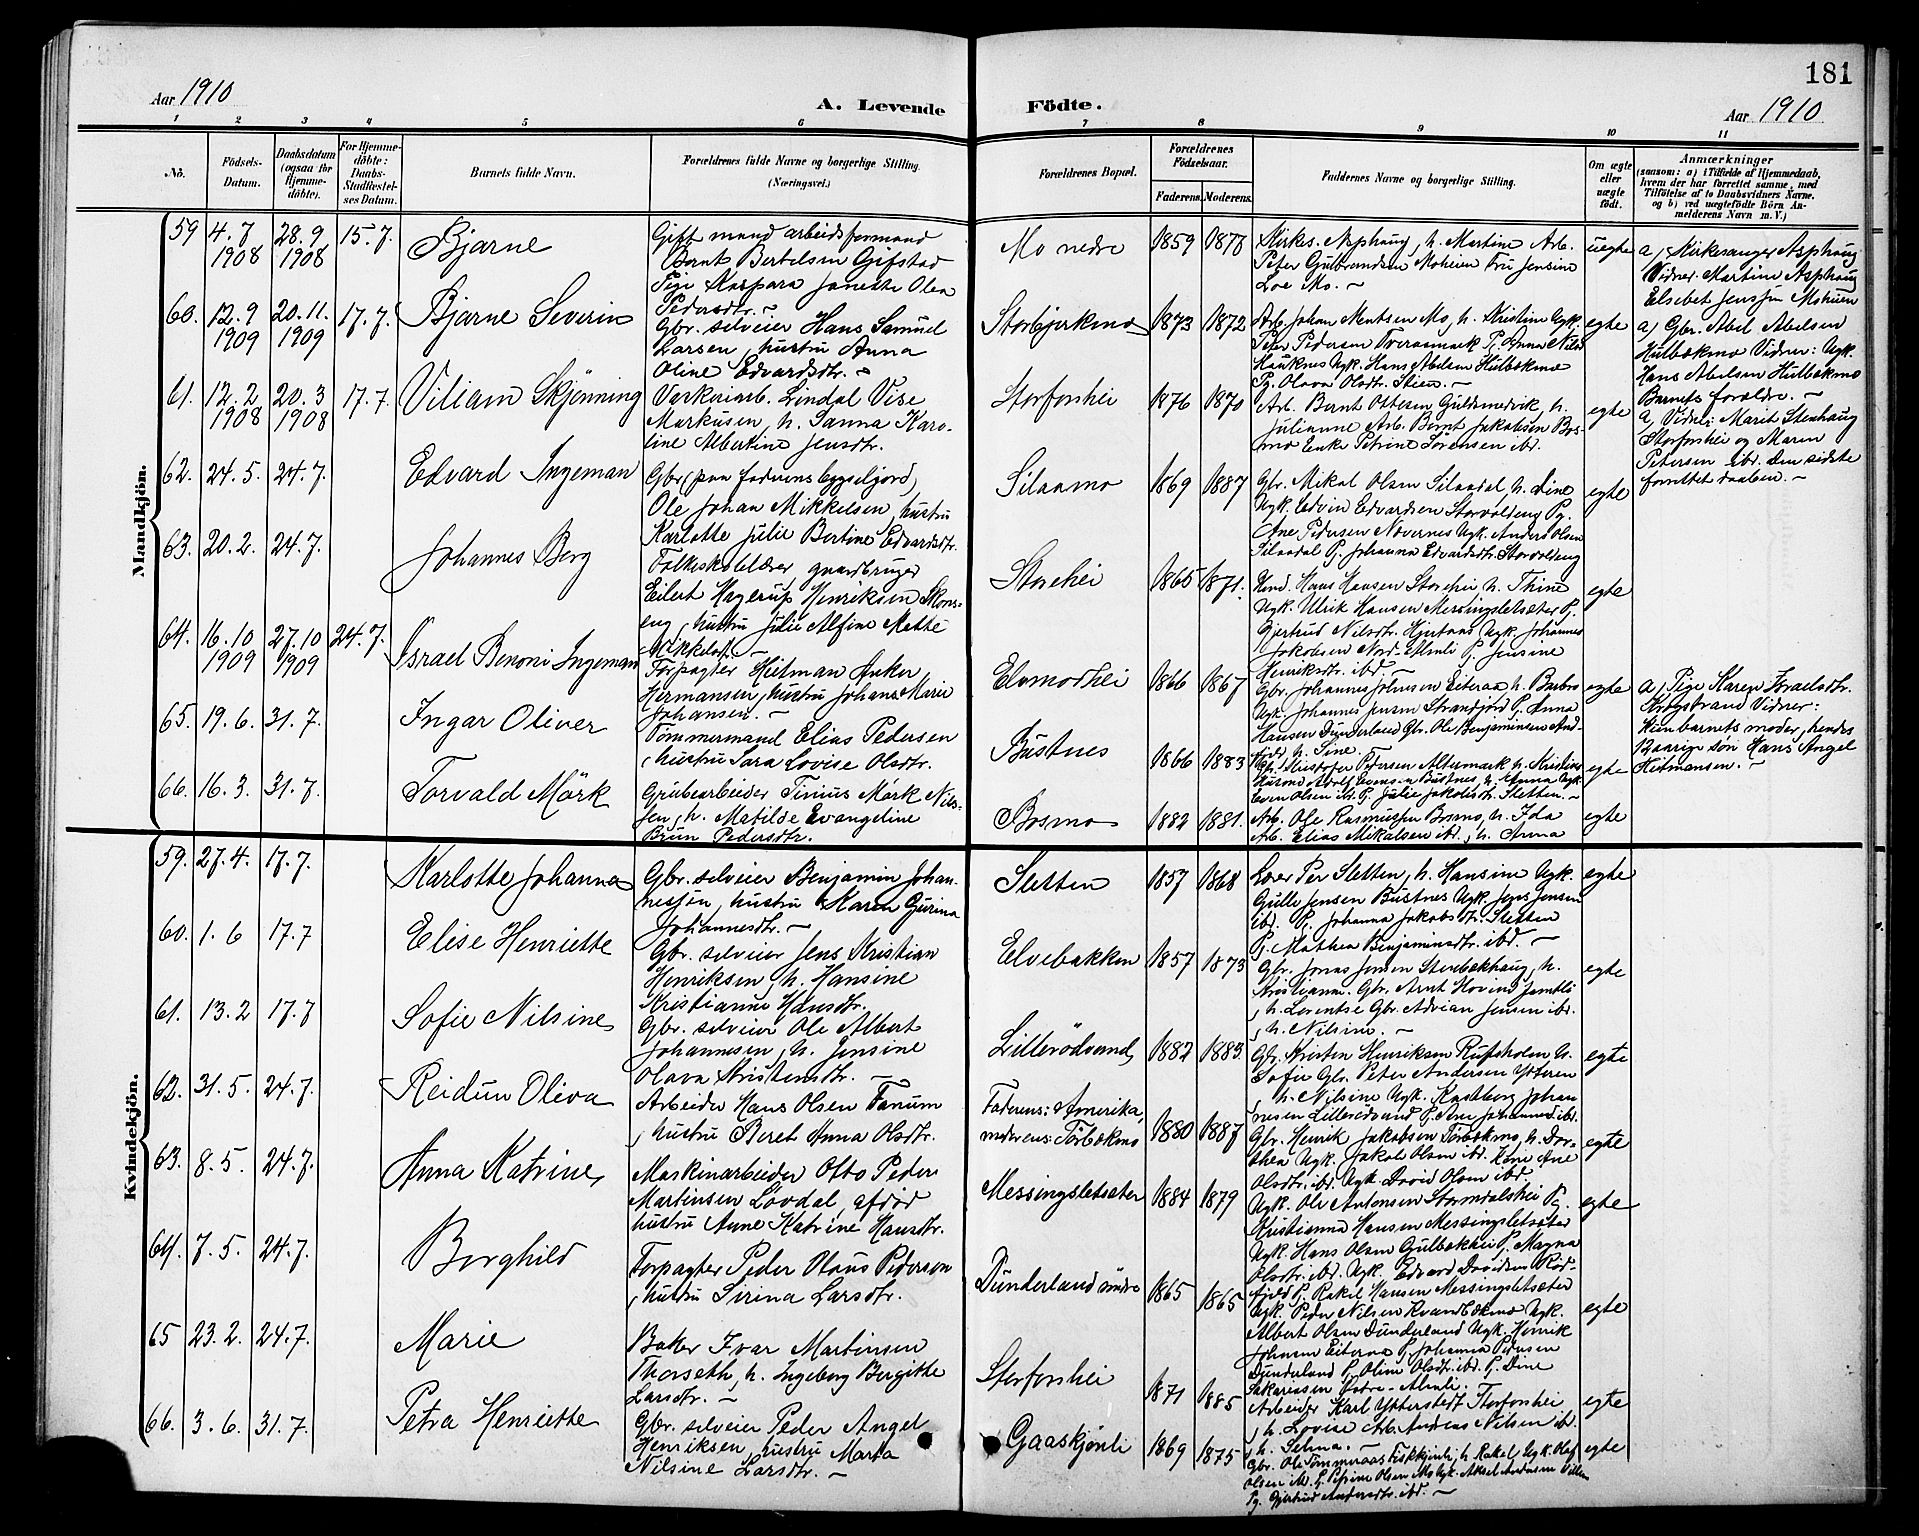 181
Aar 1910
A. Levende Födte.
Aar 1910
1 2 3 4 5 6 7 8 9 10 11
No.
Födsels-Datum.
Daabsdatum (ogsaa for Hjemme-döbte).
For Hjemme-döbte: Daabs-Stadfæstel-ses Datum.
Barnets fulde Navn.
Forældrenes fulde Navne og borgerlige Stilling.
(Næringsvei.)
Forældrenes Bopæl.
Forældrenes Födselsaar.
Faderens. Moderens.
Faddernes Navne og borgerlige Stilling.
Om ægte eller uægte födt.
Anmærkninger
(saasom: a) i Tilfælde af Hjemmedaab,
hvem der har forrettet samme, med
Tilföielse af to Daabsvidners Navne.
og b) ved uægtefödte Börn An-
melderens Navn m. V.)
Mandkjön.
59 4.7 1908 28.9 1908 15.7. Bjarne
Gift mand arbeidsformand
Bernt Bertelsen Gifstad
Pige Kaspara Janette Olea
Pedersdtr. -
Mo nedre 1859 1878
Kirkes. Asphaug, h. Martine Arb.
Peter Gulbrandsen Moheim Fru Jensine
Loe Mo. -
uegte
a, Kirkesanger Asphaug
Vidner: Martine Asphaug
Elsebet Jenssen Moheim
60. 12.9 1909 20.11. 1909 17.7. Bjarne Severin
Gbr. selveier Hans Samuel
Larsen, hustru Anna
Oline Edvardsdtr. -
Storbjerkmo 1873 1872
Arb. Johan Mentsen Mo, h. Kristine Ugk.
Peter Pedersen Tveraamark Pg. Anna Nilsd
Hauknes Ugk. Hans Abelsen Hulbækmo
Pg. Olava Olsdtr. Stien. -
egte
a, Gbr. Abel Abelsen
Hulbækmo Vidner: Ugk.
Hans Abelsen Hulbækmo
Barnets forældre. -
61. 12.2 1908 20.3 1908 17.7. Viliam Skjønning
Værkeiarb. Lindal Vise
Markusen, h. Sanna Karo-
line Albertine Jensdtr.
Storforshei 1876 1870
Arb. Bernt Ottesen Guldsmedvik, h.
Julianne Arb. Bernt Jakobsen Bos-
mo Enke Petrine Sørensen ibd.
egte
a, Vidner: Marit Stenhaug
Storforshei og Maren
Petersen ibd. Den sidste
forrettet daaben. -
62. 24.5. 24.7. Edvard Ingeman
Gbr. (paa faderens bygseljord)
Ole Johan Mikkelsen, hustru
Karlotte Julie Bertine Edvardsdtr.
Silaamo 1869 1887
Gbr. Mikal Olsen Silaadal, h. Dine
Ugk. Edvin Edvardsen Storvoldeng Pg.
Ane Pedersen Nævernes Ugk. Anders Olsen
Silaadal Pg. Johanna Edvardsdtr. Storvoldeng
egte
63. 20.2. 24.7. Johannes Berg
Folkeskolelærer gaardbruger
Eilert Hagerup Henriksen Skons-
eng, hustru Julie Alfine Mette
Mikkelsdtr. -
Storehei 1865 1871.
Kand. Hans Hansen Storehei, h. Thrine
Ugk. Ulrik Hansen Messingsletsæter Pg.
Gjertrud Nilsdtr. Hjertaas Ugk. Johannes
Jakobsen Nord-Almli Pg. Jensine
Henriksdtr. ibd. -
egte
64. 16.10 1909 27.10 1909 24.7. Israel Benoni Ingeman
Forpagter Hitman Anker
Hermansen, hustru Johana Marie
Johansen. -
Elvmohei 1866 1867
Gbr. Johannes Johnsen Eiteraa, h. Barbro
Ugk. Johannes Jensen Strandjord Pg. Anna
Hansen Dunderland Gbr. Ole Benjaminsen And-
fjeld h. Sine.
egte
a, Pige Karen Israelsdtr.
Krogstrand Vidner:
Hjembarnets moder, hendes
12aarige søn Hans Angel
Hitmansen. -
65. 19.6. 31.7. Ingar Oliver
Tømmermand Elias Pedersen
, hustru Sara Lovise Olsdtr.
Bustnes 1866 1883
Gbr. Kristofer Pedersen Altermark h. Kristine
Even Olsen ibd. Pg. Julie Jakobsdtr. Sletten. -
egte
66. 16.3. 31.7. Torvald Mörk
Grubearbeider Tinius Mørk Nils-
sen, h. Matilde Evangeline
Brun Pedersdtr.
Bosmo 1882 1881.
Arb. Ole Rasmussen Bosmo, h. Ida
Arb. Elias Mikalsen ibd., h. Anna
egte
Kvindekjön.
59. 27.4. 17.7. Karlotte Johanna
Gbr. selveier Benjamin Johan-
nessen, hustru Karen Gurina
Johannesdtr. -
Sletten 1857 1868
Lærer Per Sletten, h. Hansine Ugk.
Gulle Jensen Bustnes Ugk. Jens Jensen
ibd. Pg. Johanna Jakobsdtr. Sletten
Pg. Mathea Benjaminsdtr. ibd. -
egte
60. 1.6 17.7 Elise Henriette
Gbr. selveier Jens Kristian
Henriksen, h. Hansine
Kristianne Hansdtr.
Elvebakken 1857 1873
Gbr. Jonas Jensen Storbækhaug, h.
Kristianne. Gbr. Arnt Hovind Jamtli
, h. Lorentse Gbr. Advian Jensen ibd.
, h. Nilsine. -
egte
61. 13.2 17.7 Sofie Nilsine
Gbr. selveier Ole Albert
Johannesen, h. Jensine
Olava Kristensdtr. -
Lillerødvand 1882 1883.
Gbr. Kristen Henriksen Rufsholm h.
Sofie Gbr. Peter Andersen Ytteren
, h. Nilsine Ugk. Kastberg Johan
nesen Lillerødvand Pg. Ane Johannesd. ibd.
egte
62. 31.5. 24.7. Reidun Oliva
Arbeider Hans Olsen Fanum
, hustru Beret Anna Olsdtr.
Faderens: Amerika,
moderens: Tørbækmo 1880 1887
Gbr. Henrik Jakobsen Tørbækmo, h. Dor-
thea Ugk. Jakob Olsen ibd. Kone Ane
Olsdtr. ibd. Ugk. David Olsen ibd.
egte
63. 8.5. 24.7. Anna Katrine
Maskinarbeider Otto Peder
Martinsen Løvdal, afdød
hustru Anne Katrine Hansdtr.
Messingsletsæter 1884 1879
Ugk. Ole Antonsen Stormdalshei Pg.
Kristianna Hansen Messingsletsæter
Ugk. Hans Olsen Gulbækhei Pg. Magna
Olsdtr. ibd. Ugk. Edvard Davidsen Rød-
fjeld Pg. Rakel Hansen Messingsletsæter
egte
64. 7.5. 24.7. Borghild
Forpagter Peder Olaus Pederson
, hustru Serina Larsdtr.
Dunderland nedre 1865 1865
Ugk. Peder Nilsen Kvandbækmo Ugk.
Albert Olsen Dunderland Ugk. Henrik
Johnsen Eiteraa Pg. Johanna Pedersen
Dunderland Pg. Oline Olsdtr. ibd. Pg. Dine
Sakariassen Østre-Almli.
egte
65 23.2. 24.7. Marie
Baker Ivar Martinsen
Thorseth, h. Ingeborg Bergitte
Larsdtr. -
Storforshei 1871 1885
Arbeider Karl Ytterstedt Storforshei
, h. Lovise Arb. Andreas Nilsen ibd.
, h. Selma. -
egte
66. 3.6. 31.7. Petra Henriette
Gbr. selveier Peder Angel
Henriksen, hustru Marta
Nilsine Larsdtr. -
Gaaskjønli 1869 1875
Gbr. Ole Tømmeraas Fiskkjønli, h. Rakel Ugk. Olaf
Olsen ibd. Pg. Petrine Olsen Mo Ugk. Aksel Andersen
Pg. Gjertrud Andersdtr. ibd. -
egte